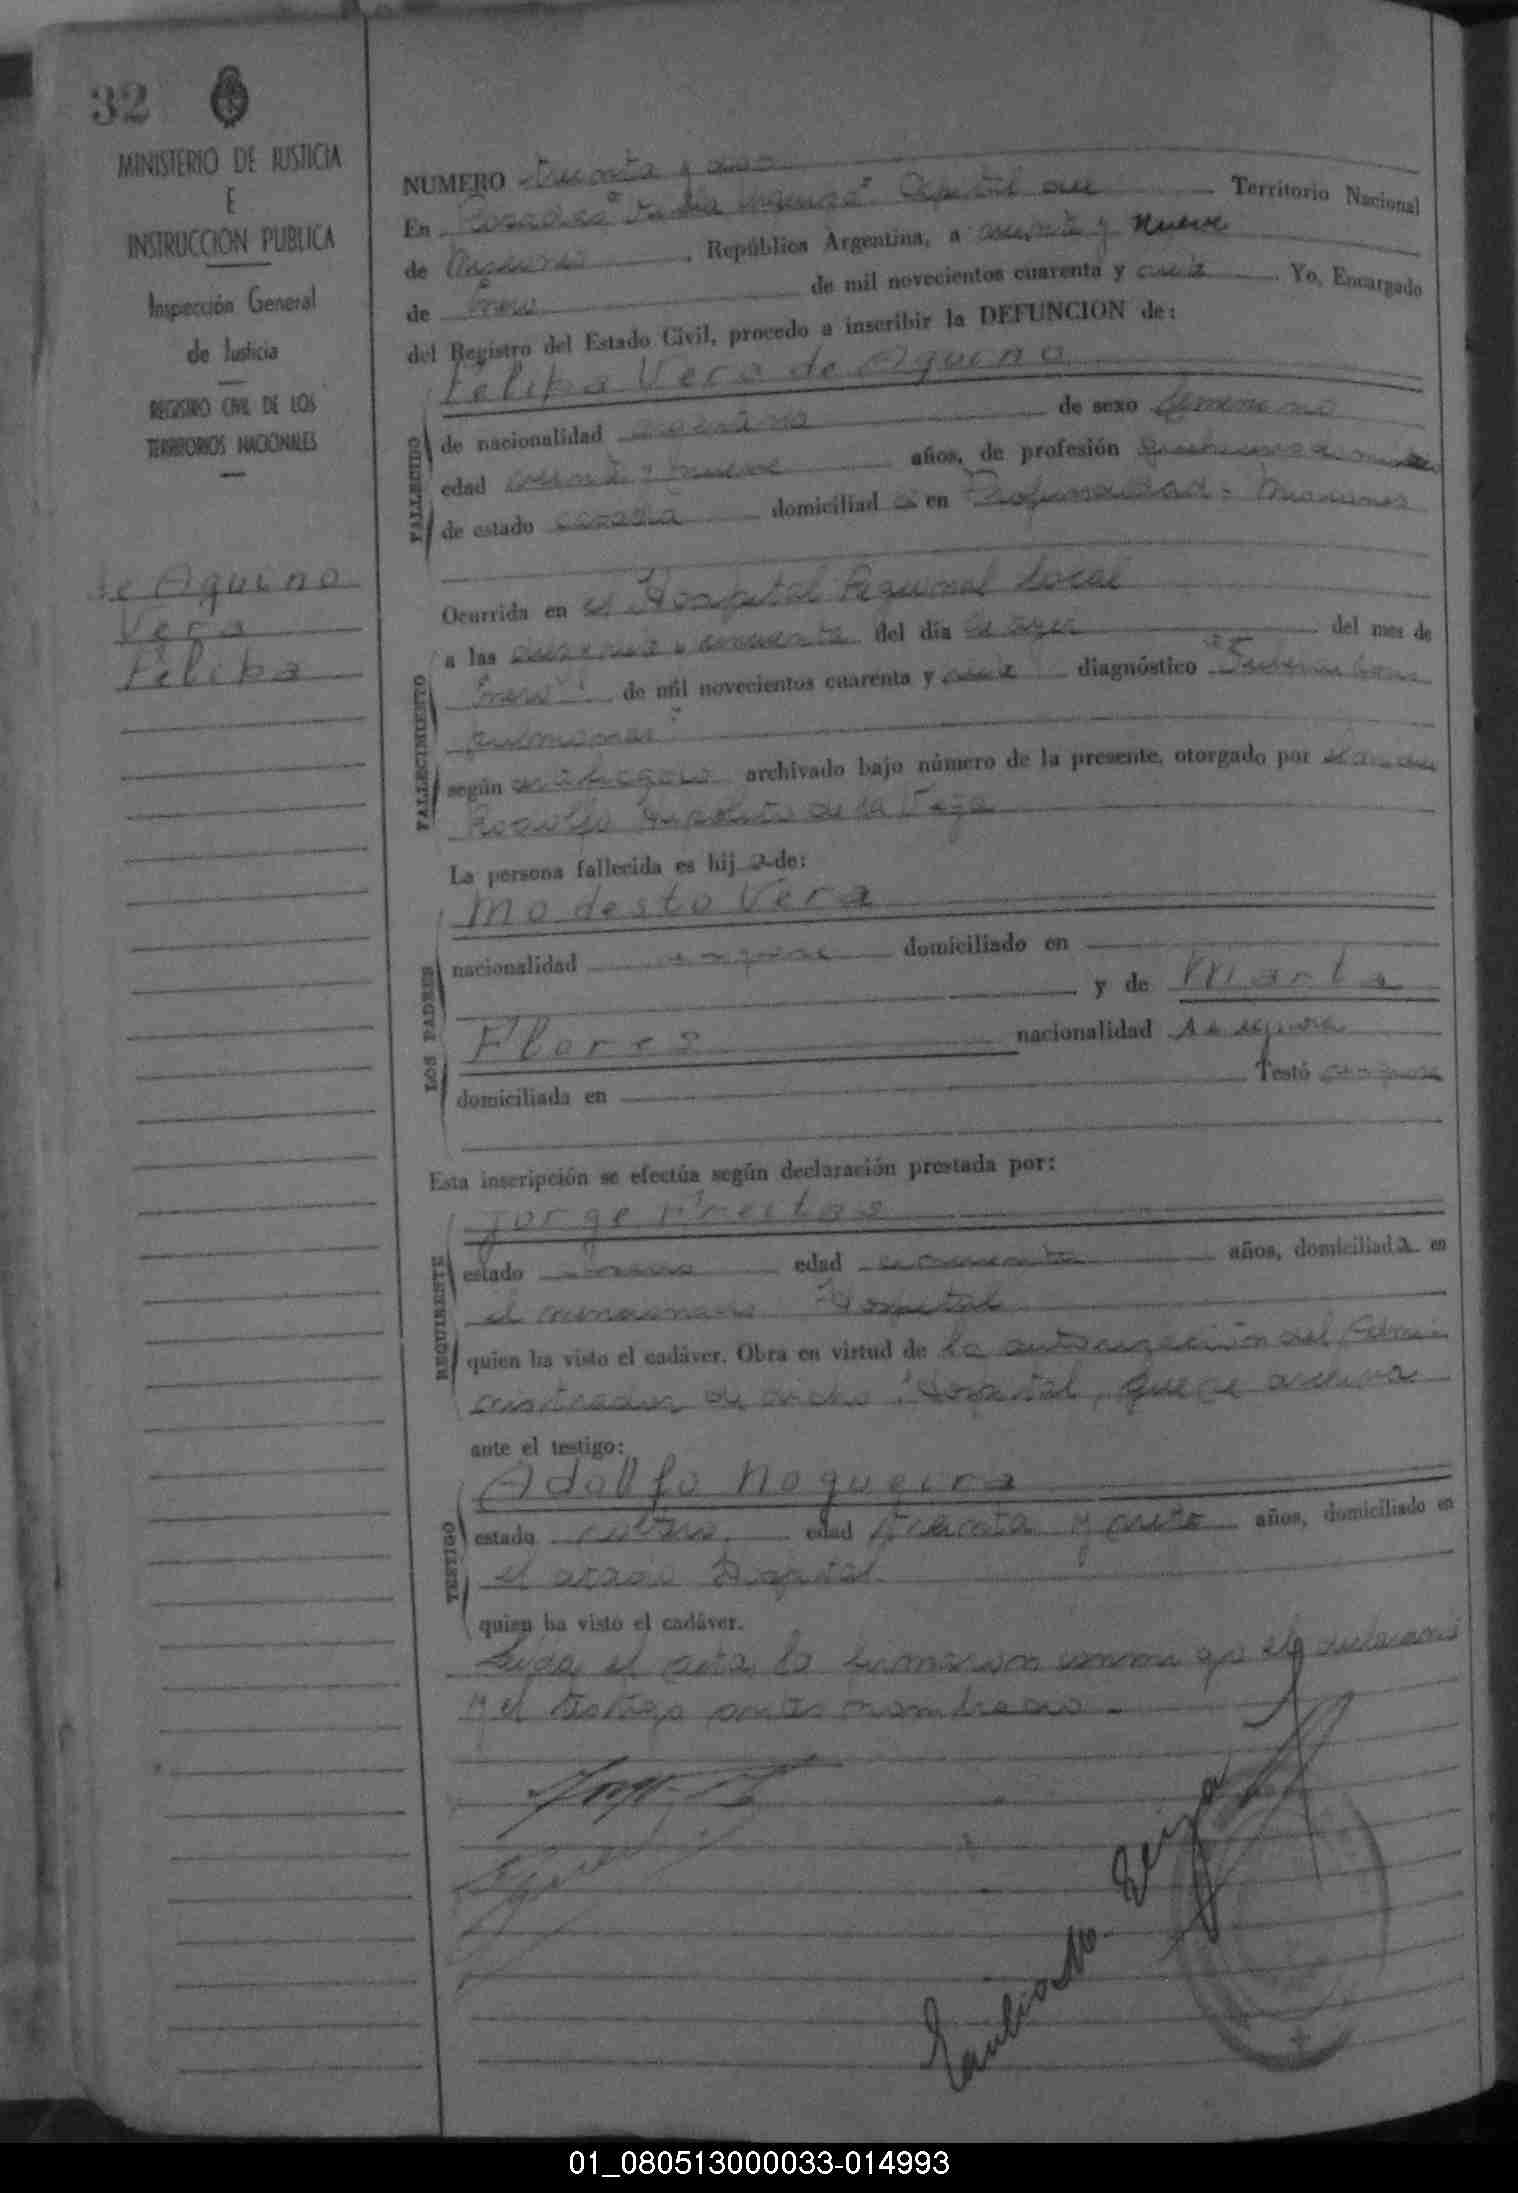 32
MINISTERIO DE JUSTICIA
E
INSTRUCCIÓN PUBLICA
Inspección General
de Justicia
REGISTRO CIVIL DE LOS
TERRITORIOS NACIONALES
de Aquino
Vera
Felipa
NUMERO treinta y dos
En Posadas Capital del Territorio Nacional
de Misiones, República Argentina, a y nueve
de Enero de mil novecientos cuarenta y Yo, Encargado
del Registro del Estado Civil, procedo a inscribir la DEFUNCION de:
Felipa Vera de Aquino
FALLECIDO
de nacionalidad argentina de sexo femenino
edad y nueve años, de profesión
de estado casada domiciliad a en Profundidad - Misiones
FALLECIMIENTO
Ocurrida en el Hospital Regional local
a las y cincuenta del día de ayer del mes de
Enero de mil novecientos cuarenta y diagnóstico "Tuberculosis
pulmonar"
según certificado archivado bajo número de la presente, otorgado por
Rodolfo Hipolito de la Vega
La persona fallecida es hij a de:
LOS PADRES
Modesto Vera
nacionalidad domiciliado en
y de Marta
Flores nacionalidad se ignora
domiciliada en Testó
Esta inscripción se efectúa según declaración prestada por:
REQUIRENTE
Jorge Freitas
estado edad cincuenta años, domiciliad a en
el mencionado Hospital
quien ha visto el cadáver. Obra en virtud de la autorización del Admi-
nistrador de dicho Hospital, que se archiva
ante el testigo:
TESTIGO
Adolfo Nogueira
estado soltero, edad treinta y años, domiciliado en
el citado Hospital
quien ha visto el cadáver.
Leída el acta la firmaron conmigo el declarante
y el testigo antes nombrado.-
01_080513000033-014993